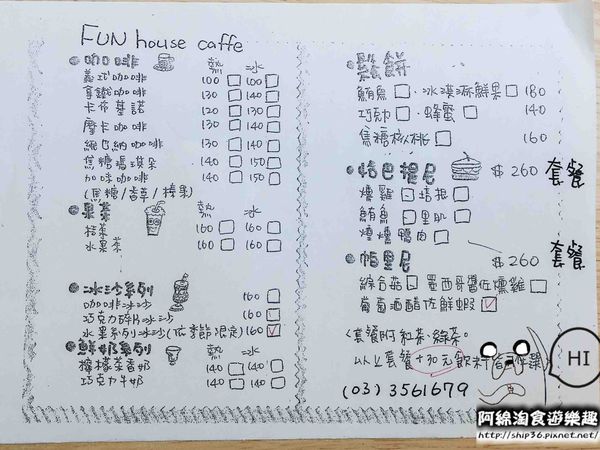 FUN house caffe
咖啡 熱 冰
義式咖啡 100 100
拿鐵咖啡 130 140
卡布基諾 120 130
摩卡咖啡 130 140
維也納咖啡 130 140
焦糖瑪琪朵 140 150
加味咖啡 140 150
(焦糖/香草/榛果)
果茶 熱 冰
桔茶 160 160
水果茶 160 160
冰沙系列
咖啡冰沙 160
巧克力碎片冰沙 160
水果系列冰沙(依季節限定) 160
鮮奶系列 熱 冰
檸檬茶香奶 140 140
巧克力牛奶 140 140
鬆餅
鮪魚 · 冰淇淋鮮果 180
巧克力 · 蜂蜜 140
焦糖核桃 160
恰巴提尼 $260 套餐
燻雞 培根
鮪魚 里肌
煙燻鴨肉
帕里尼 $260 套餐
綜合菇 墨西哥醬佐燻雞
葡萄酒醋佐鮮蝦
〈套餐附紅茶.綠茶。
以上套餐+30元飲料皆可任選〉
(03)3561679
HI
阿綿淘食遊樂趣
http://ship36.pixnet.net/